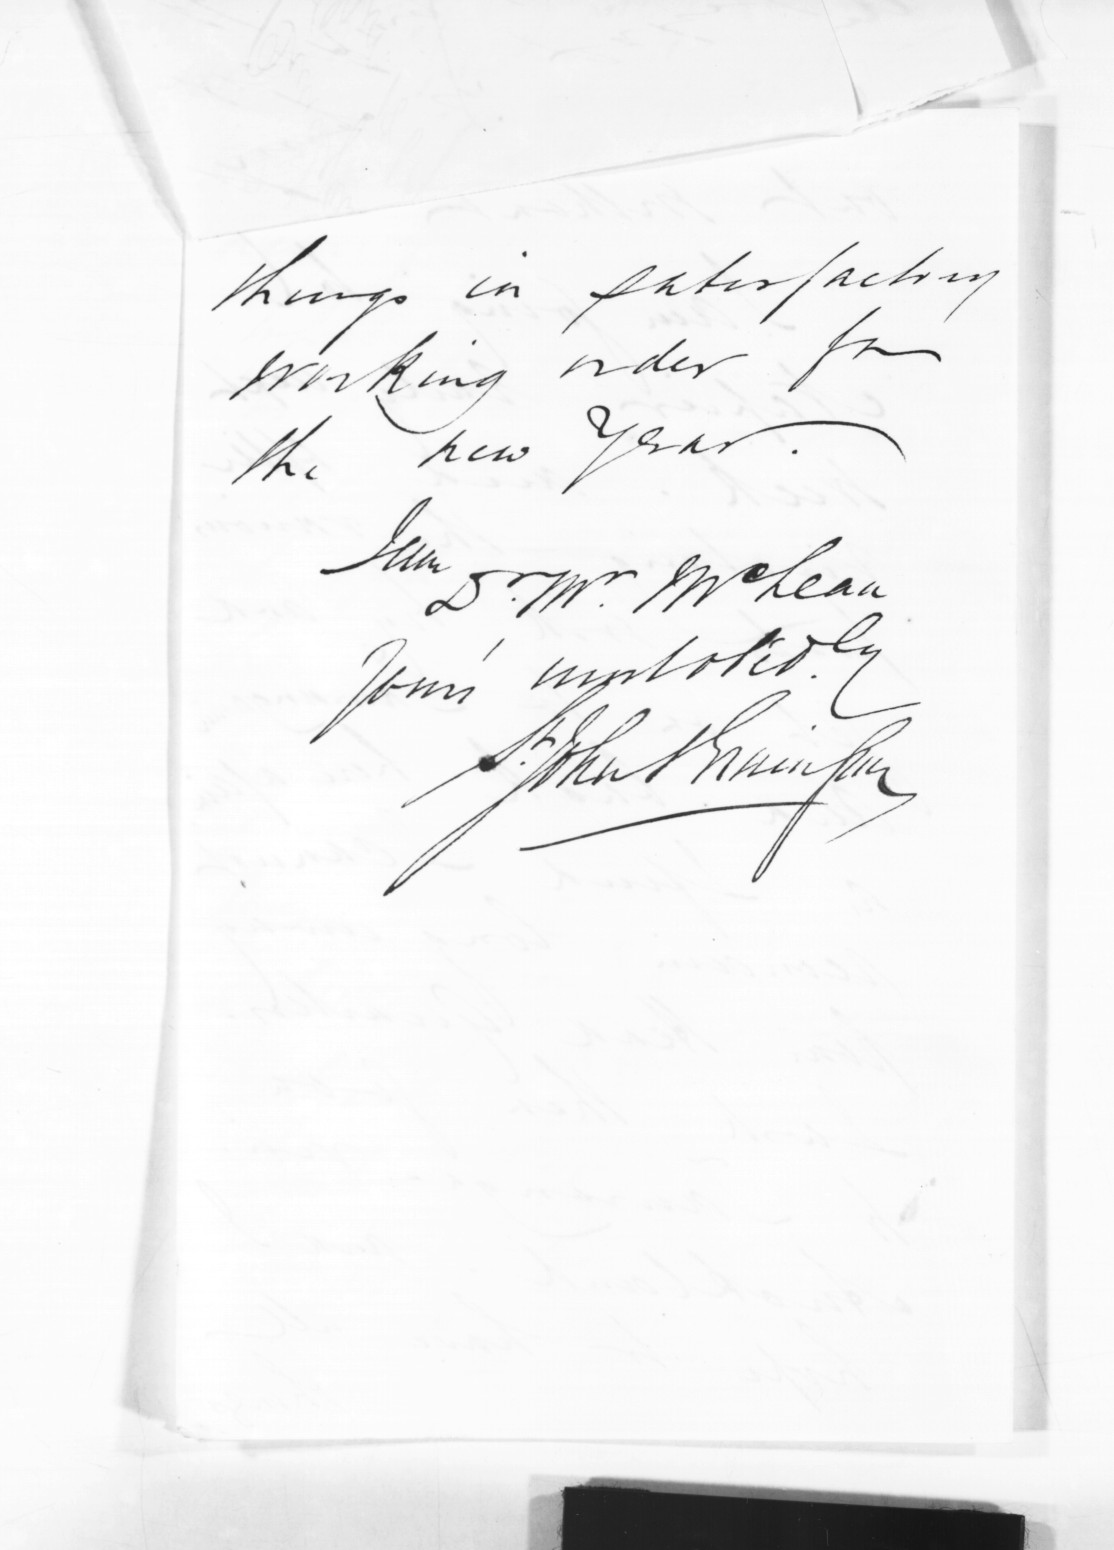 things in satisfactory
working order for
the new Year.
I am
Dr. Mr. McLean
Yours' most obed.ly
St John Branigan